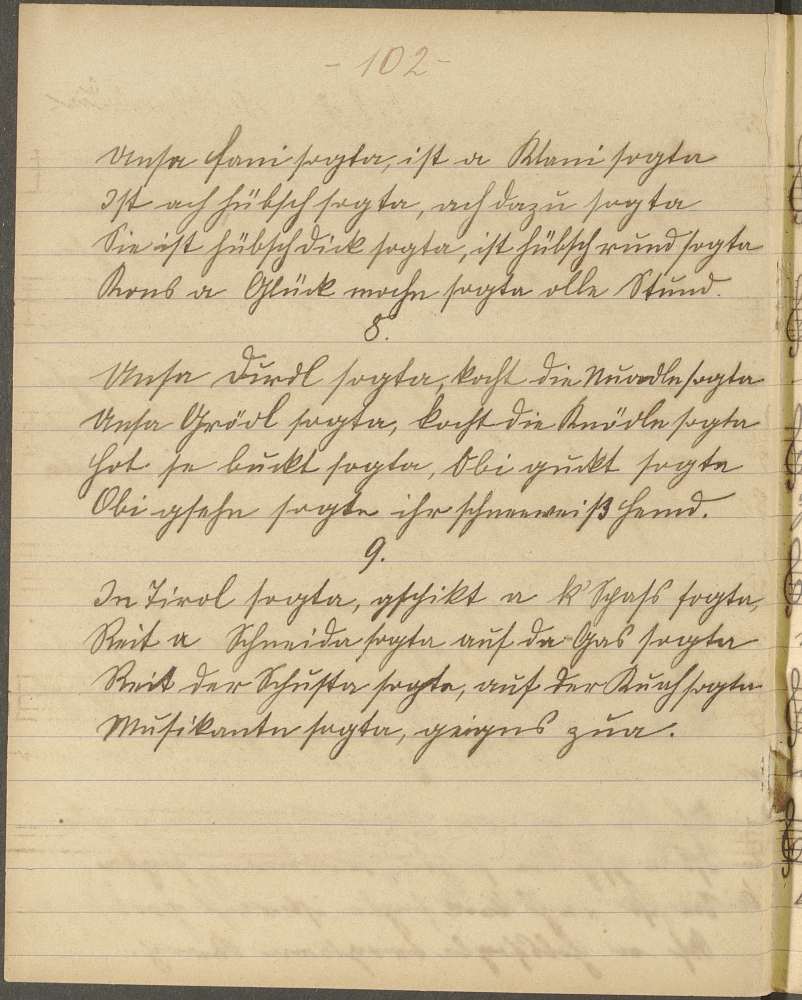 - 102 -
Unsa Fani sogta, ist a Wani sogta
Ist ach hübsch sogta, ach dazu sogta
Sie ist hübsch dick sogta, ist hübsch rund sogta
Kons a Glück mochn sogta olle Stund.
8.
Unsa Dirdl sogta, kocht die Nuadln sogta
Unsa Grödl sogta, kocht die Knödln sogta
Hot se buckt sogta, Obi guckt sogta
Obi gsehn sogta ihr schneeweiß Hemd.
9.
In Tirol sogta, gschikt a k'Spass sogta,
Reit a Schneida sogta auf da Gas sogta
Reit der Schusta sogta, auf der Kuah sogta
Musikantn sogta, geigns zua.